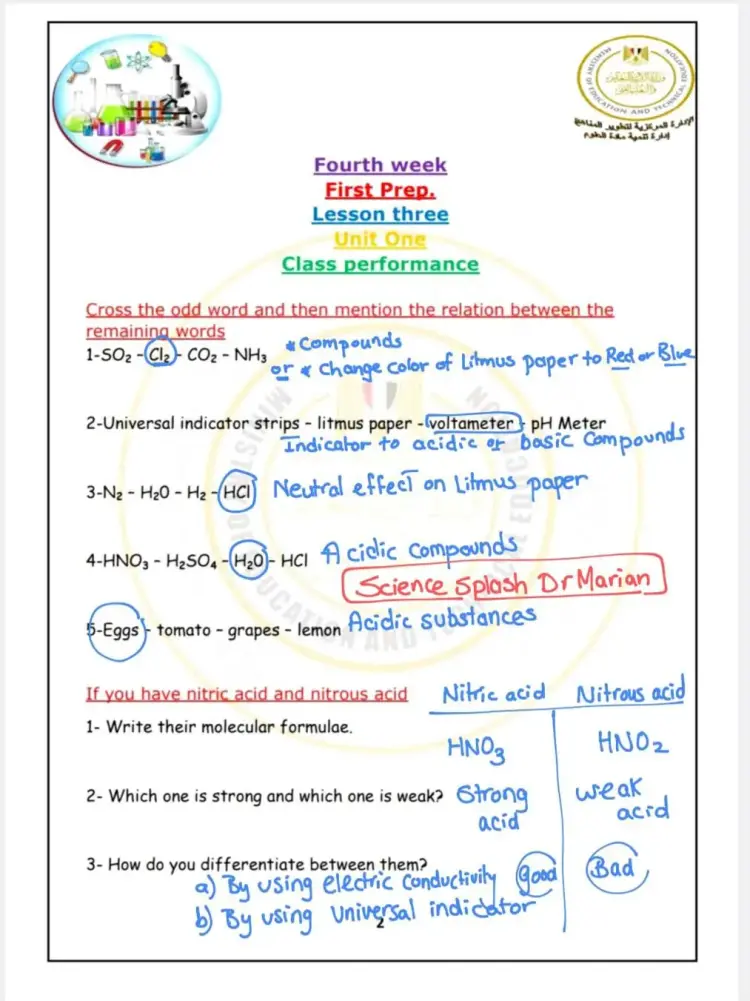 MINISTRY OF EDUCATION AND TECHNICAL EDUCATION
وزارة التربية والتعليم
والتعليم الفني
الإدارة المركزية لتطوير المناهج
إدارة تنمية مادة العلوم
Fourth week
First Prep.
Lesson three
Unit One
Class performance
Cross the odd word and then mention the relation between the
remaining words
1-SO₂ - Cl₂ - CO₂ - NH₃ * Compounds
or * change color of Litmus paper to Red or Blue
2-Universal indicator strips - litmus paper - voltameter - pH Meter
Indicator to acidic or basic Compounds
3-N₂ - H₂O - H₂ - HCl Neutral effect on Litmus paper
4-HNO₃ - H₂SO₄ - H₂O - HCl Acidic compounds
Science Splash Dr Marian
5-Eggs - tomato - grapes - lemon Acidic substances
If you have nitric acid and nitrous acid Nitric acid Nitrous acid
1- Write their molecular formulae.
HNO₃ HNO₂
2- Which one is strong and which one is weak? Strong acid weak acid
3- How do you differentiate between them?
a) By using electric Conductivity good Bad
b) By using Universal indicator
2